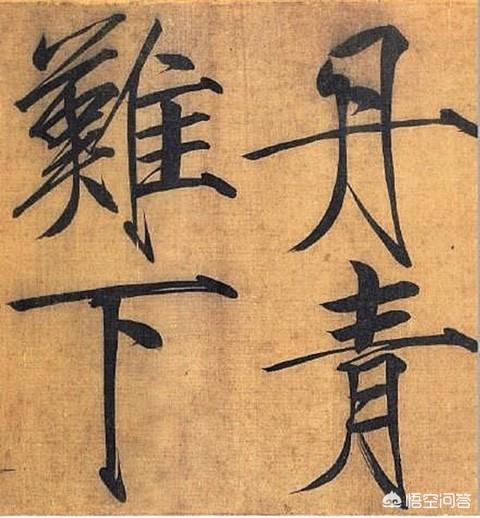 丹青
難下
悟空问答